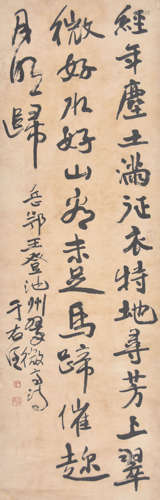 經年塵土滿征衣特地尋芳上翠
微好水好山看未足馬蹄催趁
月明歸
岳鄂王登池州翠微亭詩
于右任